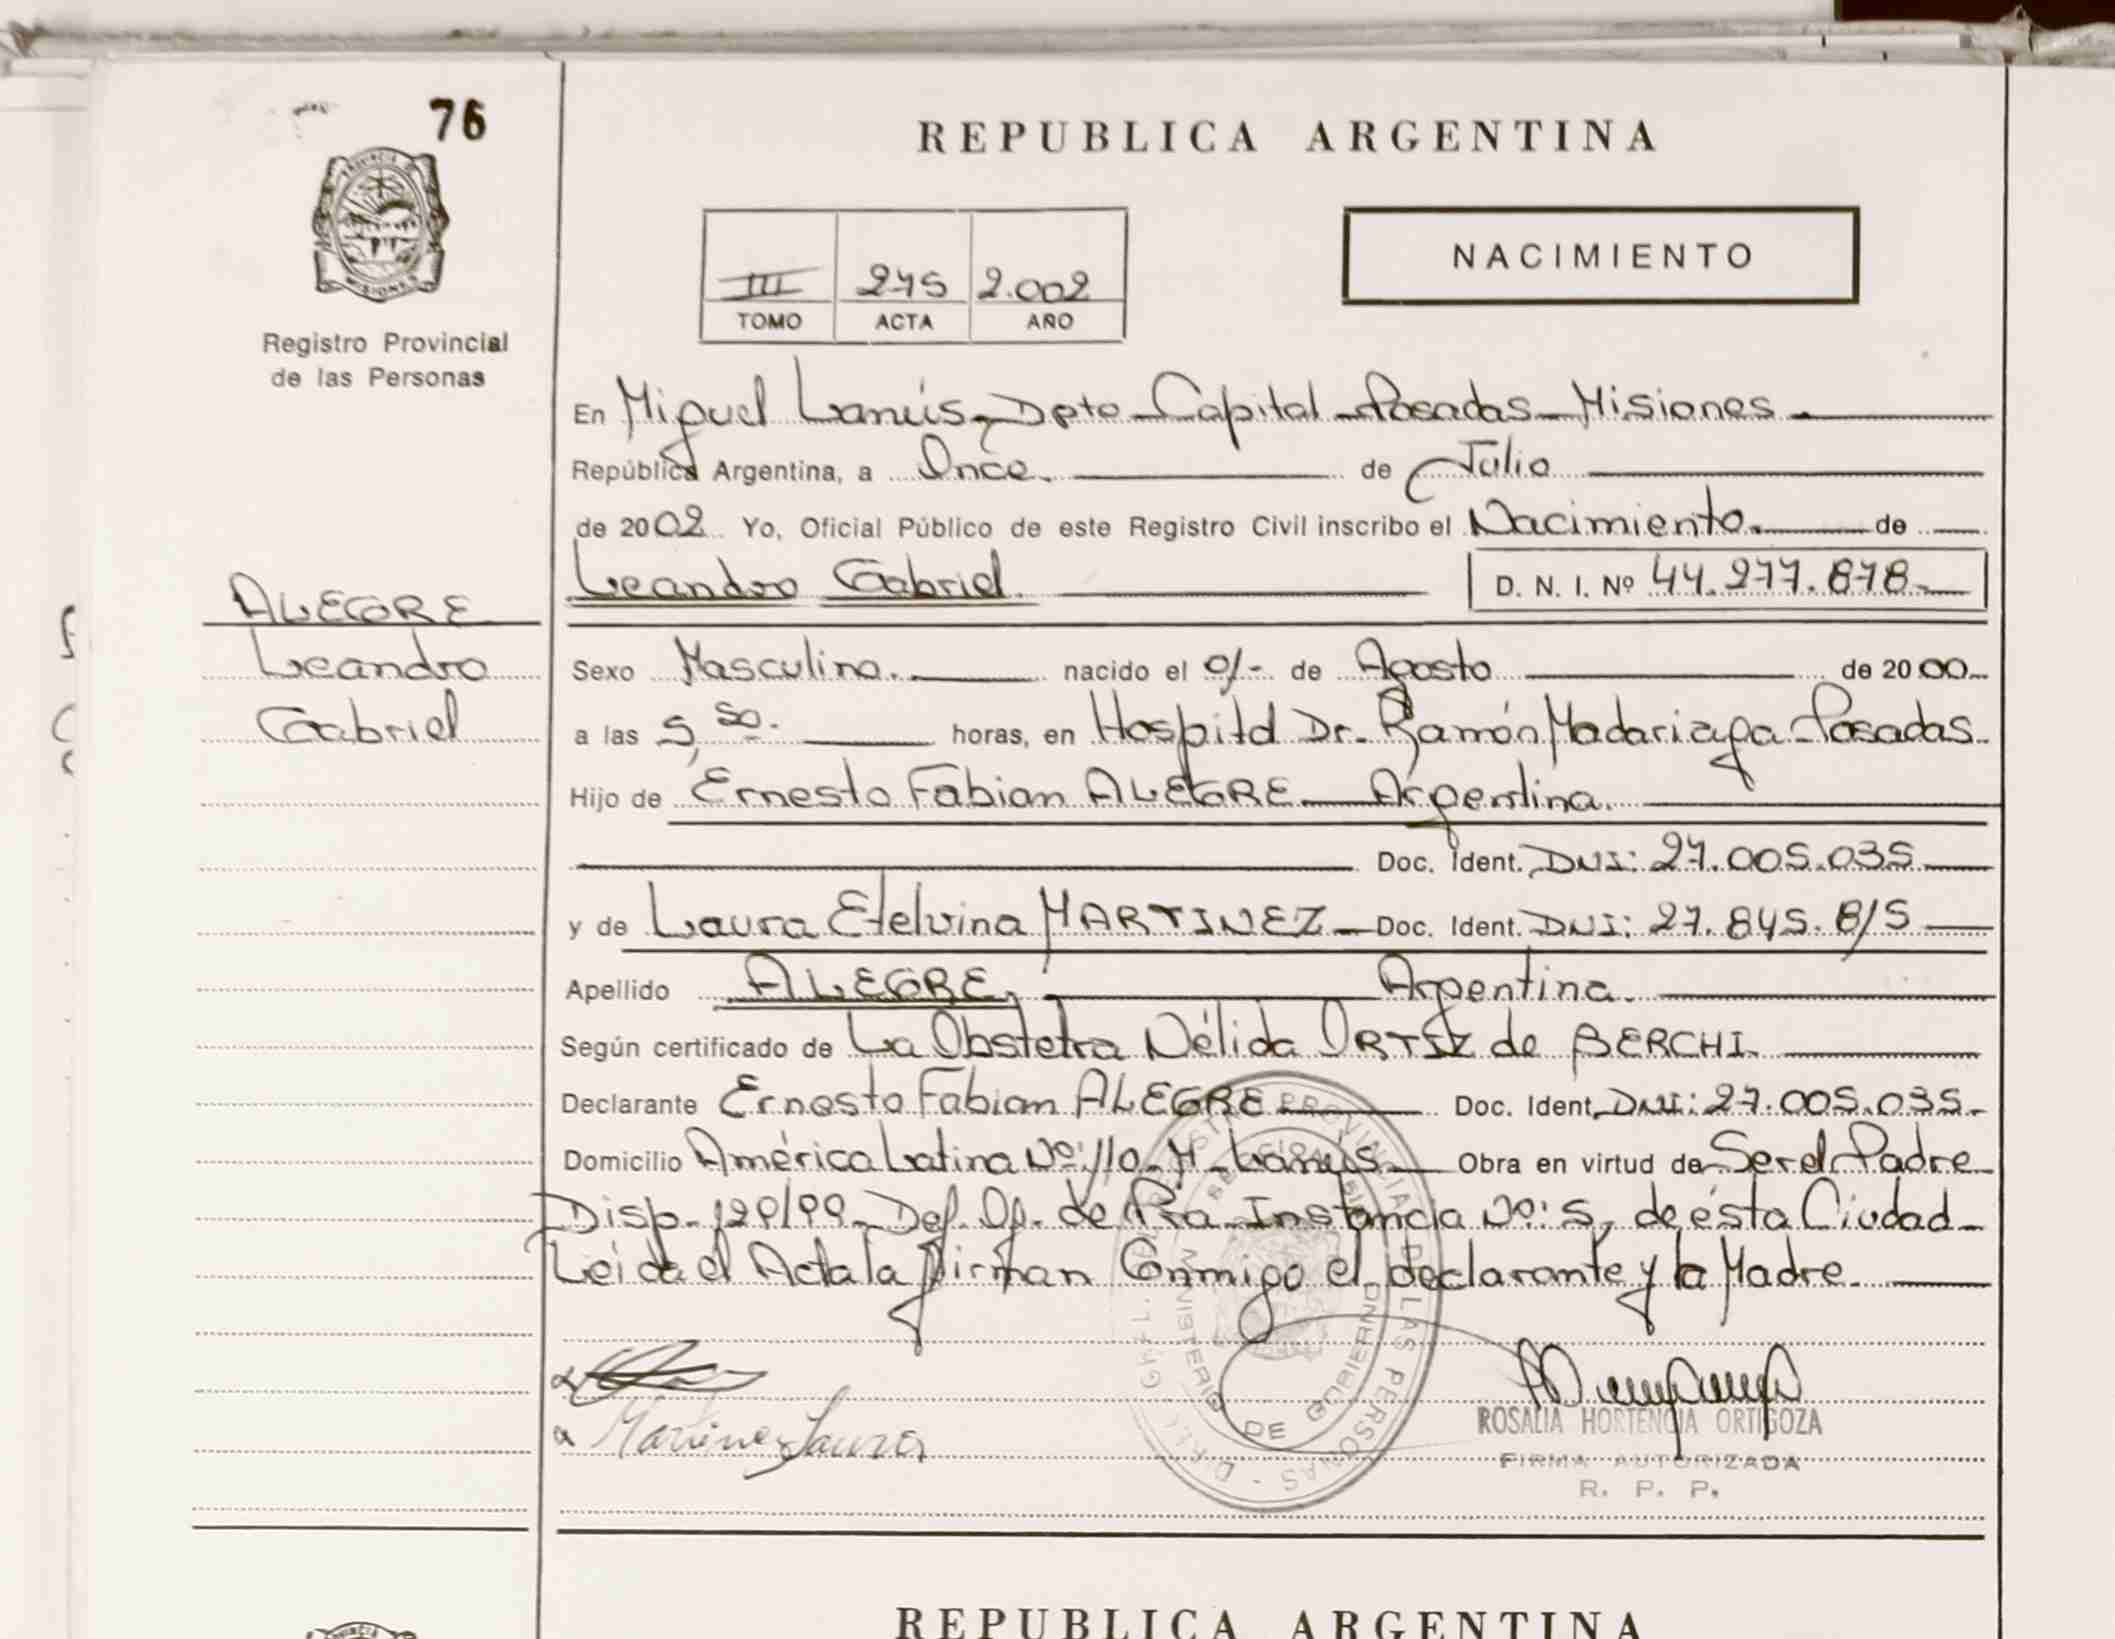 76
REPUBLICA ARGENTINA
PROVINCIA DE
MISIONES
Registro Provincial
de las Personas
NACIMIENTO
III 275 2.002
TOMO ACTA AÑO
En Miguel Lanús - Dpto Capital - Posadas - Misiones -
República Argentina, a Once. de Julio
de 2002 Yo, Oficial Público de este Registro Civil inscribo el Nacimiento. de
Leandro Gabriel D. N. I. Nº 44.277.878-
ALEGRE
Leandro
Gabriel
Sexo Masculino. nacido el 01- de Agosto de 2000
a las 5,50. horas, en Hospital Dr. Ramón Madariaga - Posadas.
Hijo de Ernesto Fabian ALEGRE - Argentina.
Doc. Ident. DNI: 27.005.035
y de Laura Etelvina MARTINEZ - Doc. Ident. DNI: 27.845.815
Apellido ALEGRE, Argentina.
Según certificado de La Obstetra Nélida ORTIZ de BERCHI.
Declarante Ernesto Fabian ALEGRE Doc. Ident. DNI: 27.005.035.
Domicilio América Latina Nº: 110 - M - Lanús Obra en virtud de Ser el Padre
Disp. 129/99 - Def. Of. de Pra Instancia Nº: 5, de ésta Ciudad -
Leida el Acta la firman Conmigo el declarante y la Madre.
Martinez Laura
PROVINCIAL DE LAS PERSONAS
MINISTERIO DE GOBIERNO
ROSALIA HORTENCIA ORTIGOZA
FIRMA AUTORIZADA
R. P. P.
REPUBLICA ARGENTINA